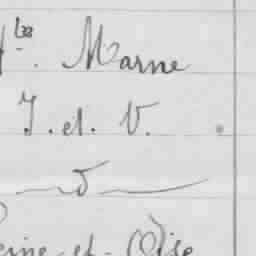 Hte Marne
I. et. V.
— d —
Seine-et-Oise